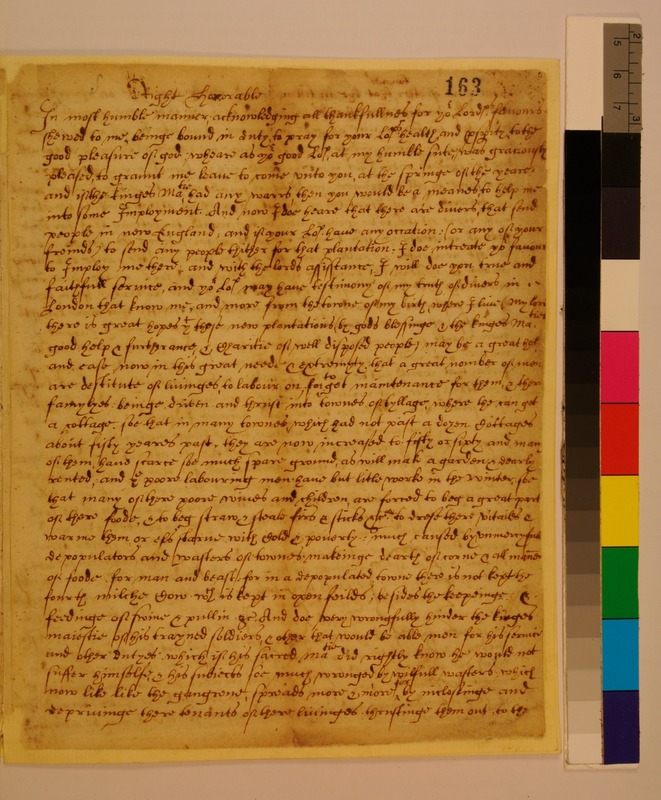 163
Right Honorable
In most humble manner, acknowledging all thankfullnes for yor Lords: favours
shewed to me, beinge bound in duty to pray for your Lops health, and prsprity, to the
good pleasure of god, wheare as yor good Lop, at my humble sute, was graciously
pleased, to graunt me leave to come unto you, at the springe of the yeare
and if the kinges Matie had any warrs then you would be a meanes to help me
into some Imployment. And now I doe heare that there are divers, that send
people in new England, and if your Lop have any occation: (or any of your
freinds) to send any people thither for that plantation: I doe intreate yor favour
to Imploy me there, and with the lords assistance, I will doe you true and
faithfull service, and yor Lop may have testimony of my truth of divers in
London that know me, and more from the towne of my birth, where I live (My lord
there is great hopes yt these new plantations (by gods blessinge & the kinges Maties
good help & furtherance, & Charitie of well disposed people) may be a great help
and ease now in this great need & extremyty, that a great nomber of men
are destitute of livinges to labour on, to get maintenance for them, & there
famylyes beinge driven and thrust into townes of tyllage, where the can get
a cottage, soe that in many townes, which had not past a dozen Cottages
about fifty yeares past, they are now increased to fifty or sixty and many
of them, have scarce soe much spare ground, as will mak a garden & dearly
rented, and ye poore labouring men have but litle work in the winter, soe
that many of there poore wives and children, are forced to beg a great part
of there foode, & to beg straw & steale firs & sticks &c. to drese there vitailes &
warme them or els starve with Cold & poverty: much caused by unmercyfull
depopulators and wasters of townes, makeinge dearth of corne & all maner
of foode. for man and beast, for in a depopulated towne there is not kept the
fourth milche Cow, wch is kept in open feilds, be sides the keepeinge &
feedinge of swine & pullin &c. And doe very wrongfully hinder the kinges
maiestie of his trayned soldiers, & other that would be able men for his service
and other dutyes which if his sacred Matie did rightly know he would not
suffer himselfe, & his subiects soe much wronged by wilfull wasters, which
now like like the gangrene, spreads more & more, by inclosinge and
depriveinge there tenants of there livinges, thrustinge them out, to the